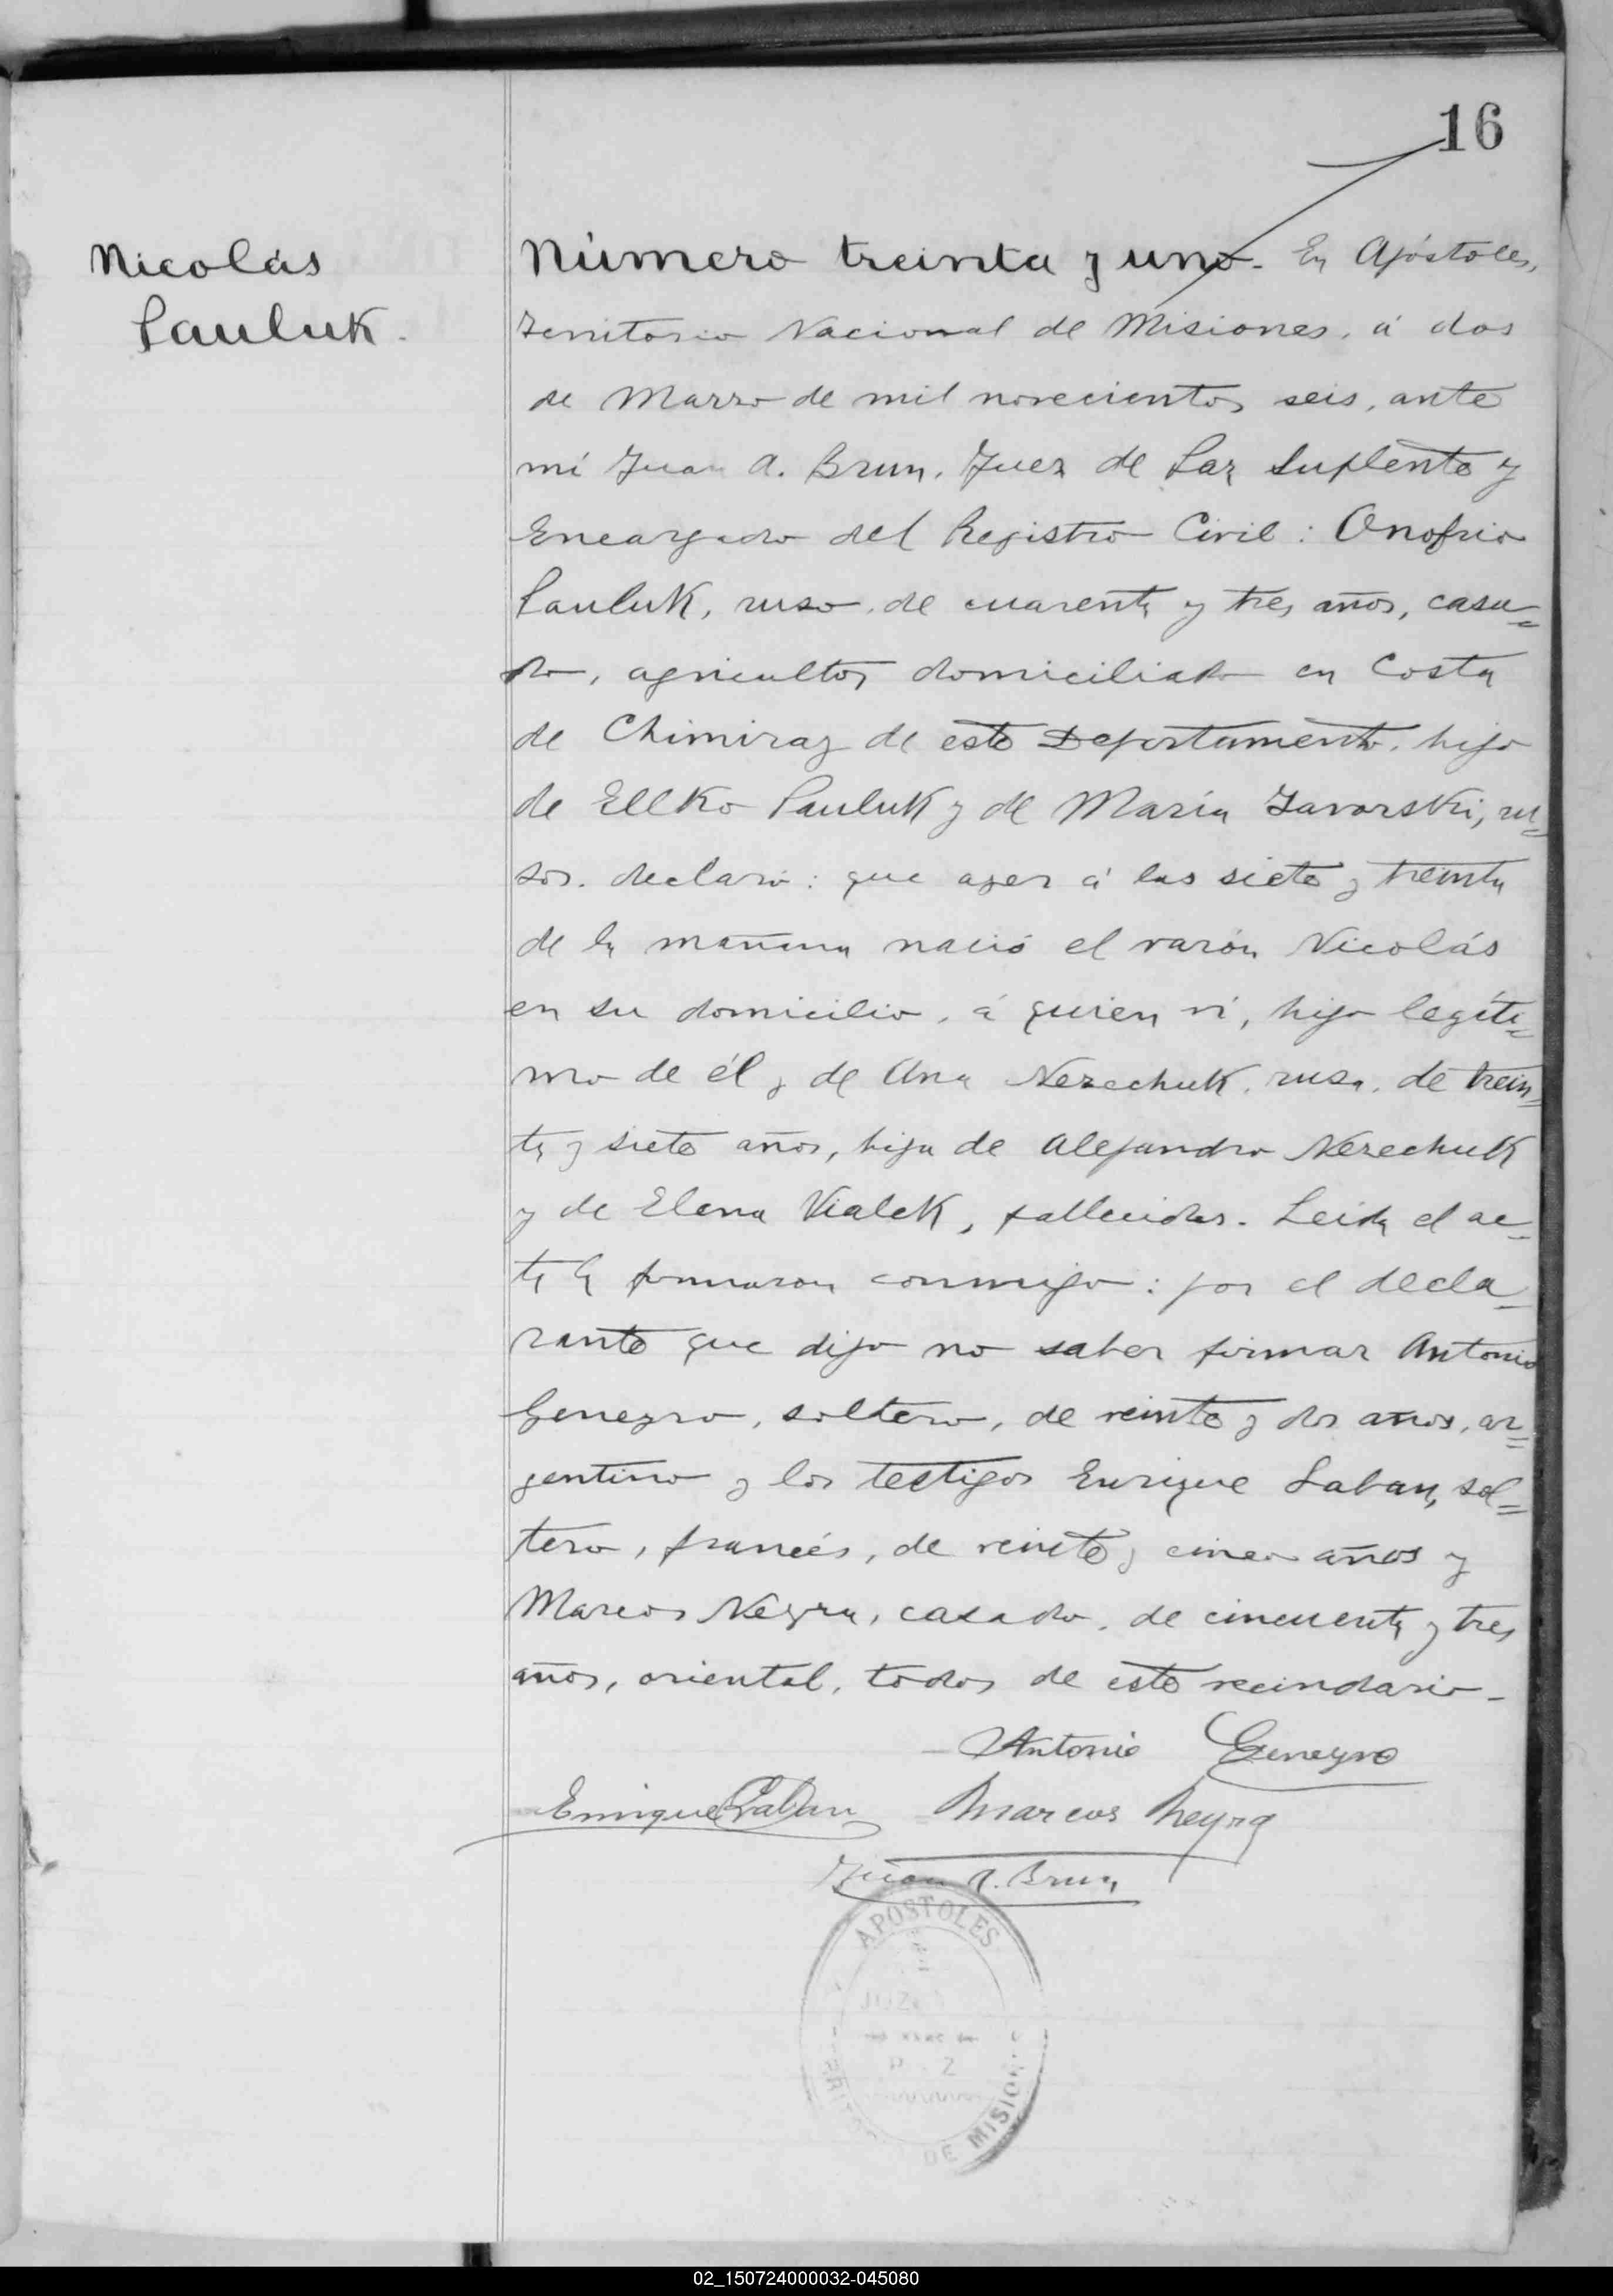 16
Nicolás
Pauluk.
Número treinta y uno. En Apóstoles,
Territorio Nacional de Misiones, á dos
de Marzo de mil novecientos seis, ante
mí Juan A. Brun, Juez de Paz Suplente y
Encargado del Registro Civil: Onofrio
Pauluk, ruso, de cuarenta y tres años, casa=
do, agricultor, domiciliado en Costa
de Chimiray de este Departamento, hijo
de Ellko Pauluk y de María Zavorski, ru=
sos. declaró: que ayer á las siete y treinta
de la mañana nació el varón Nicolás
en su domicilio, á quien ví, hijo legíti=
mo de él y de Ana Nezechuk, rusa, de trein=
ta y siete años, hija de Alejandro Nezechuk
y de Elena Vialek, fallecidos. Leida el ac=
ta la firmaron conmigo: por el decla=
rante que dijo no saber firmar Antonio
Geneyro, soltero, de veinte y dos años, ar=
gentino y los testigos Enrique Laban, sol=
tero, francés, de veinte y cinco años y
Marcos Neyra, casado, de cincuenta y tres
años, oriental, todos de este vecindario-
Antonio Geneyro
Enrique Laban Marcos Neyra
Juan A. Brun
APOSTOLES
DE MISION
02_150724000032-045080